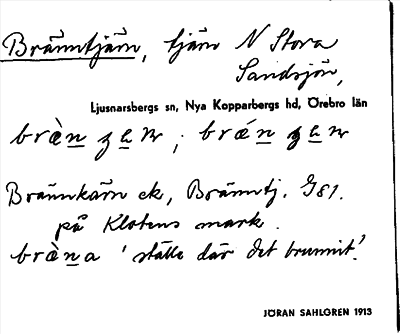 Bränntjärn, tjärn N Stora
Sandsjön,
Ljusnarsbergs sn, Nya Kopparbergs hd, Örebro län
Brännkärn ek, Bränntj. G81.
på Klotens mark.
bræ̀na 'ställe där det brunnit'.
JÖRAN SAHLGREN 1913